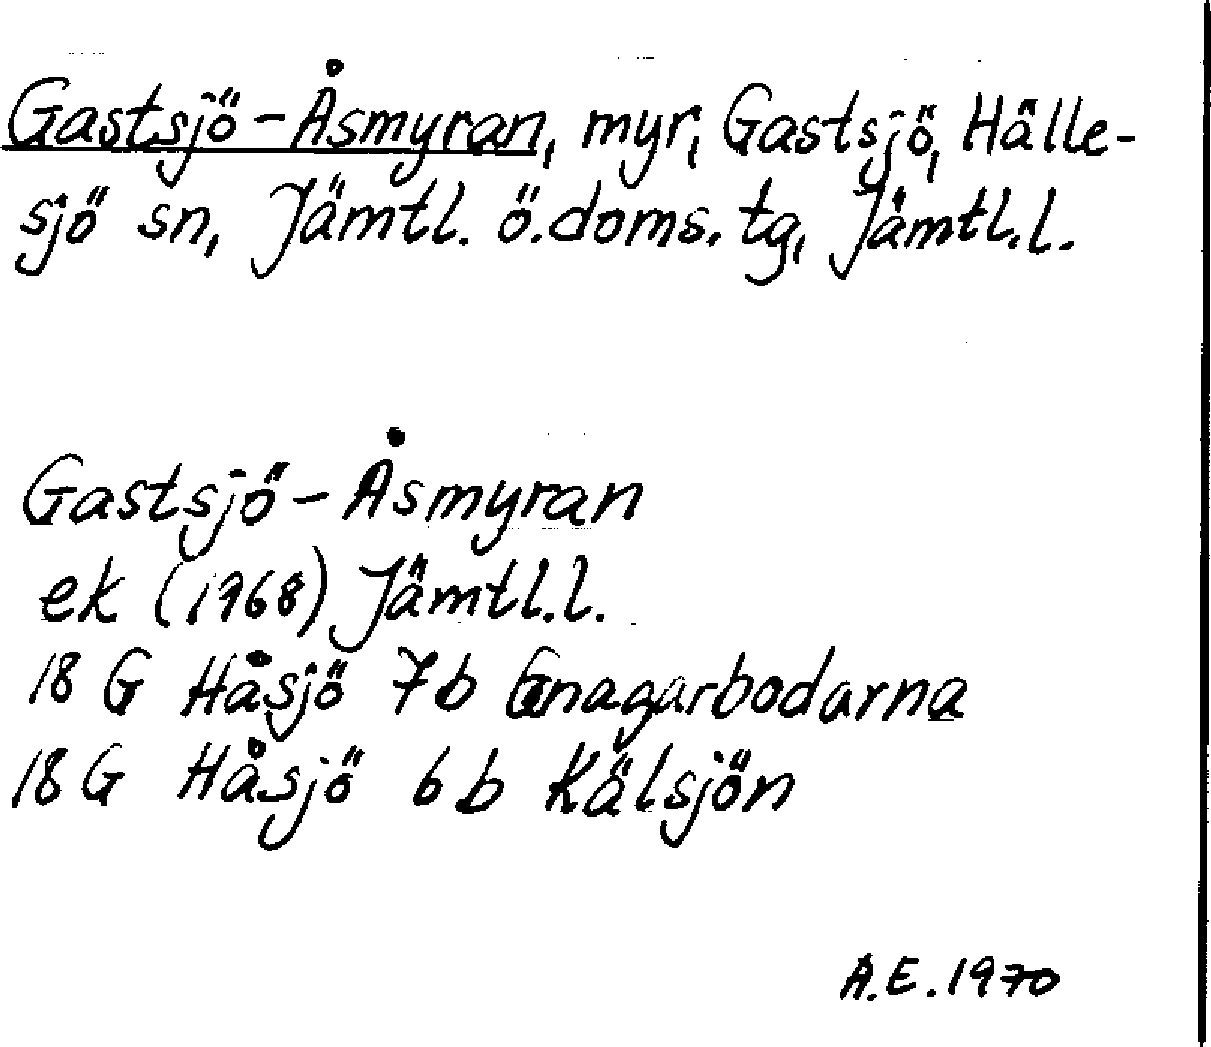 Gastsjö-Åsmyran, myr, Gastsjö, Hälle-
sjö sn, Jämtl. ö.doms. tg, Jämtl.l.
Gastsjö-Åsmyran
ek (1968) Jämtl.l.
18 G Håsjö 7b Gnagarbodarna
18 G Håsjö 6b Kälsjön
A.E. 1970